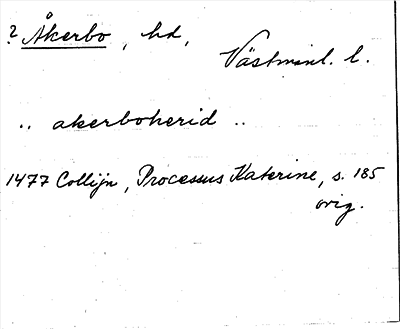 ? Åkerbo, hd,
Västmanl. l.
.. akerboherid ..
1477 Collijn, Processus Katerine, s. 185
orig.